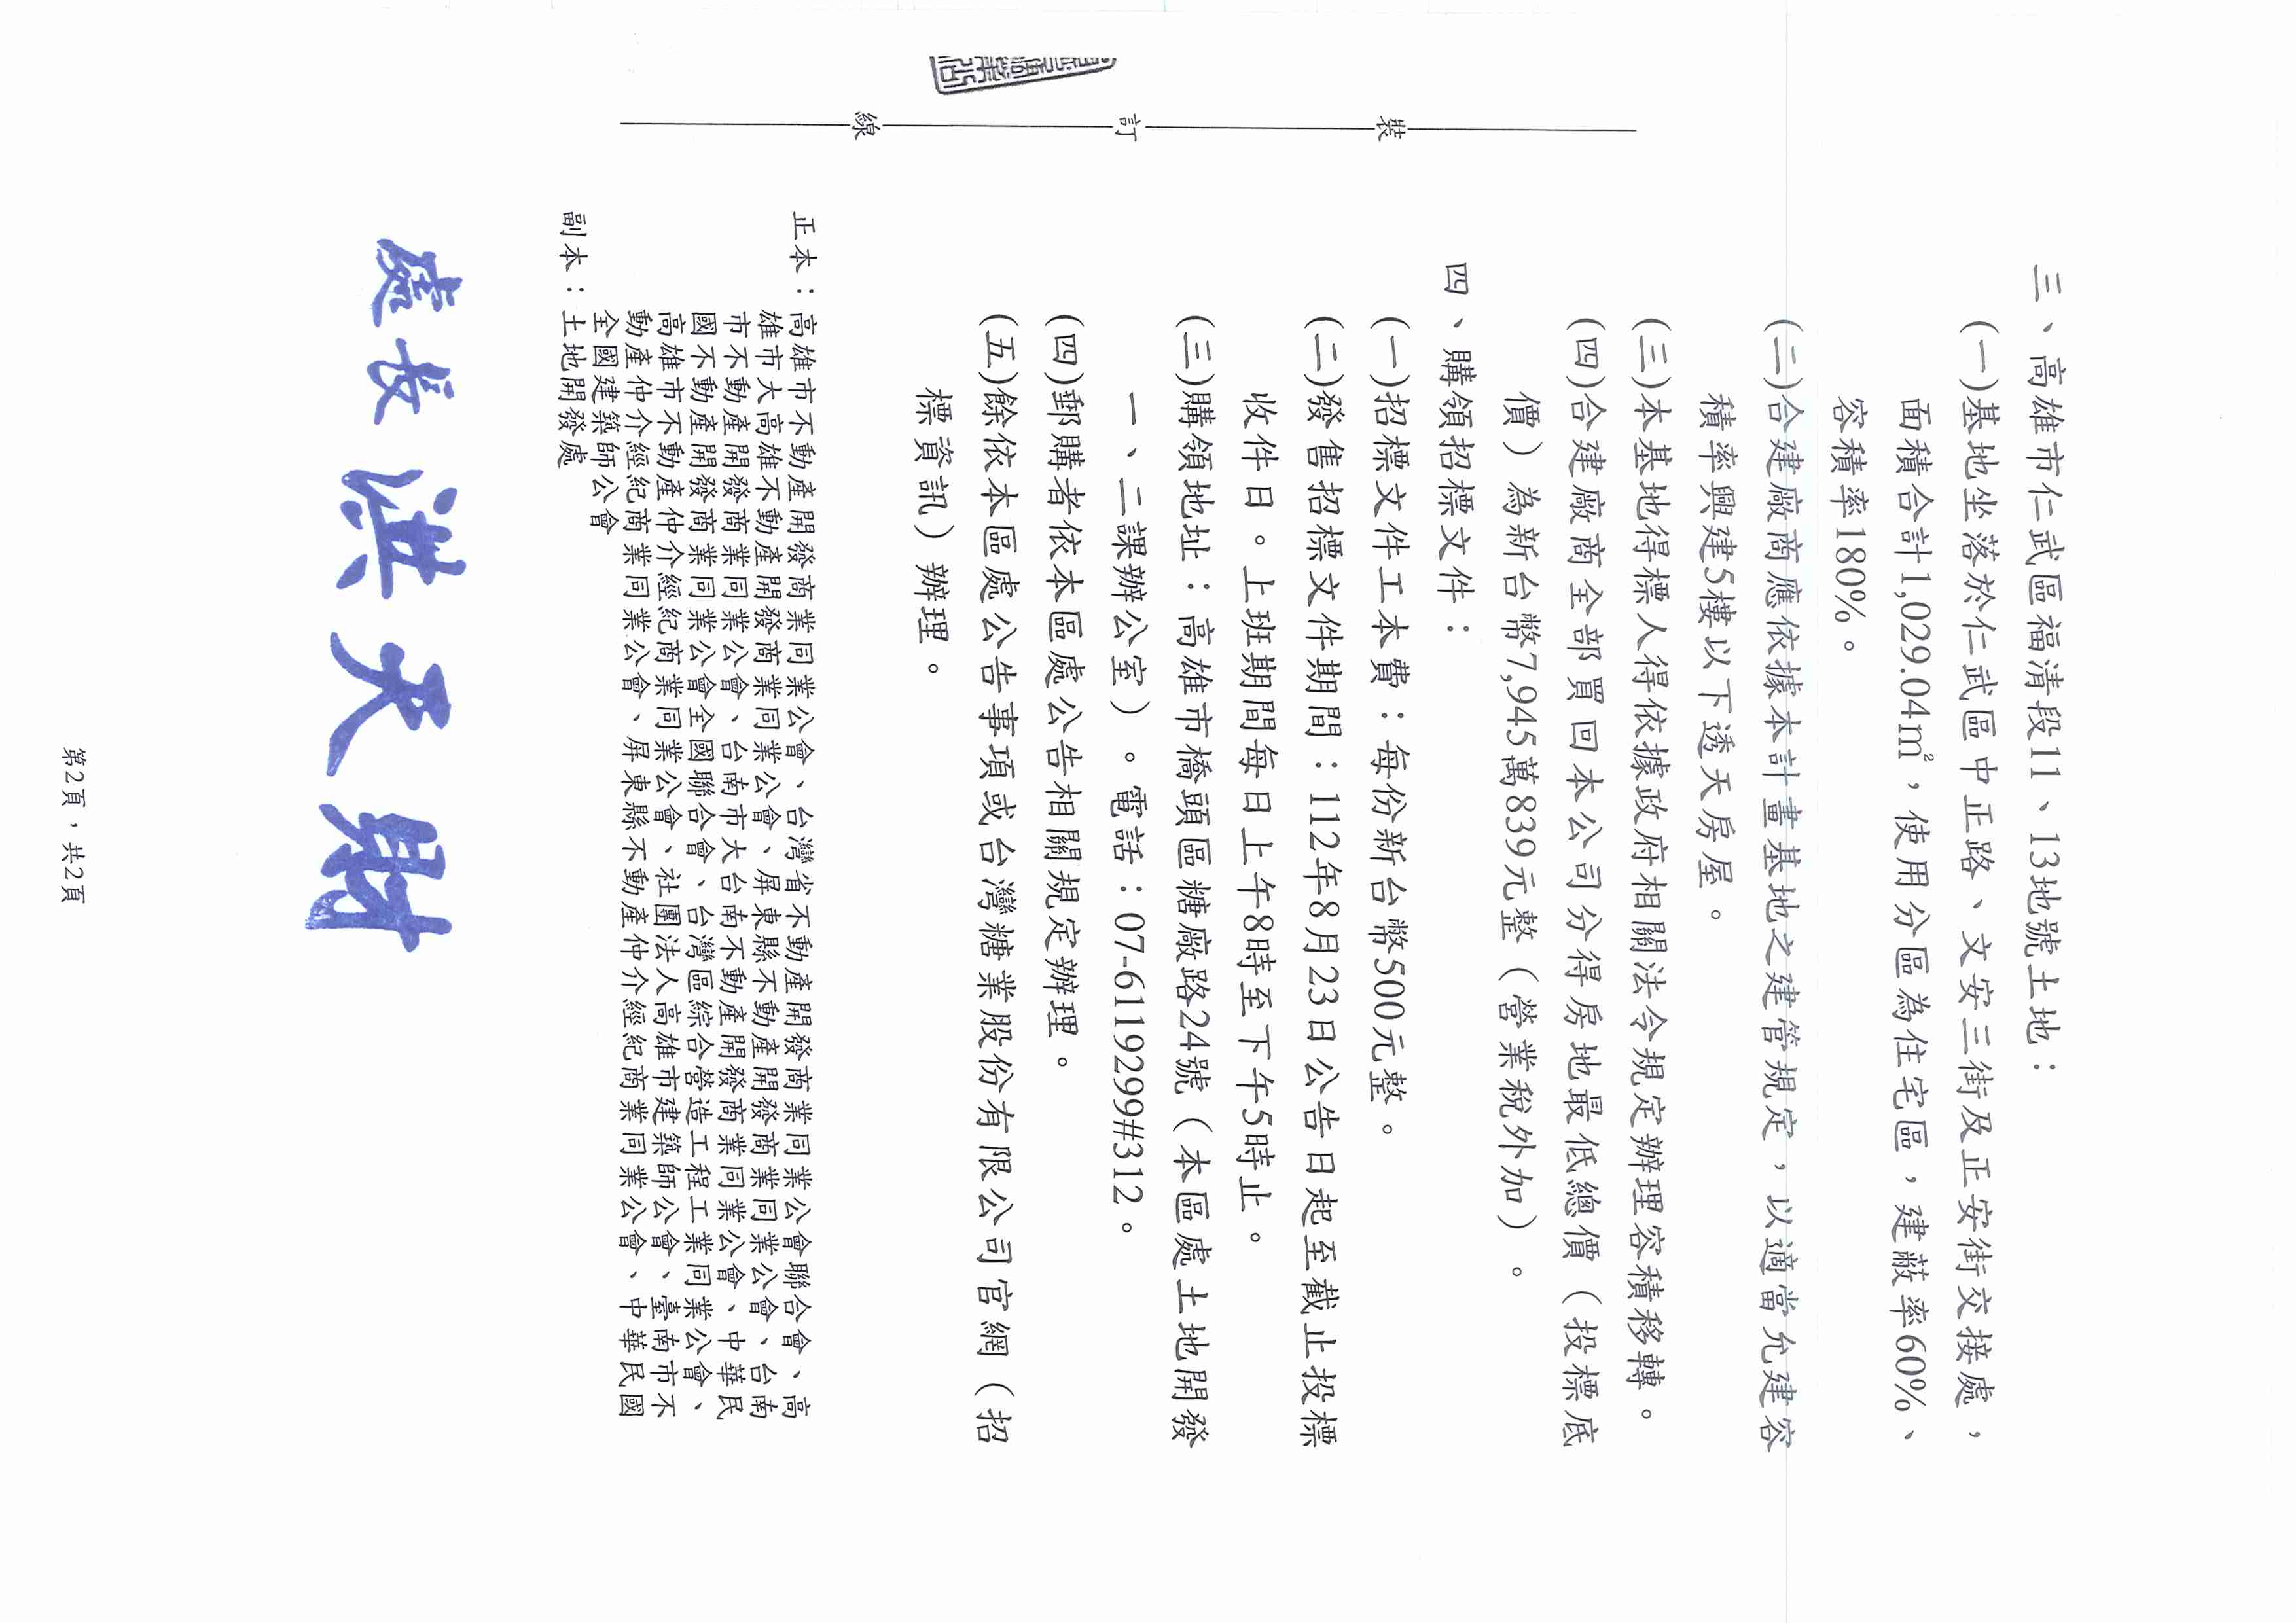 三、高雄市仁武區福清段11、13地號土地：
(一)基地坐落於仁武區中正路、文安三街及正安街交接處，
面積合計1,029.04㎡，使用分區為住宅區，建蔽率60%、
容積率180%。
(二)合建廠商應依據本計畫基地之建管規定，以適當允建容
積率興建5樓以下透天房屋。
(三)本基地得標人得依據政府相關法令規定辦理容積移轉。
(四)合建廠商全部買回本公司分得房地最低總價（投標底
價）為新台幣7,945萬839元整（營業稅外加）。
四、購領招標文件：
(一)招標文件工本費：每份新台幣500元整。
(二)發售招標文件期間：112年8月23日公告日起至截止投標
收件日。上班期間每日上午8時至下午5時止。
(三)購領地址：高雄市橋頭區糖廠路24號（本區處土地開發
一、二課辦公室）。電話：07-6119299#312。
(四)郵購者依本區處公告相關規定辦理。
(五)餘依本區處公告事項或台灣糖業股份有限公司官網（招
標資訊）辦理。
正本：高雄市不動產開發商業同業公會、台灣省不動產開發商業同業公會聯合會、高
雄市大高雄不動產開發商業同業公會、屏東縣不動產開發商業同業公會、台南
市不動產開發商業同業公會、台南市大台南不動產開發商業同業公會、中華民
國不動產開發商業同業公會全國聯合會、台灣區綜合營造工程工業同業公會、
高雄市不動產仲介經紀商業同業公會、社團法人高雄市建築師公會、臺南市不
動產仲介經紀商業同業公會、屏東縣不動產仲介經紀商業同業公會、中華民國
全國建築師公會
副本：土地開發處
處長洪天財
第2頁，共2頁
裝
訂
線